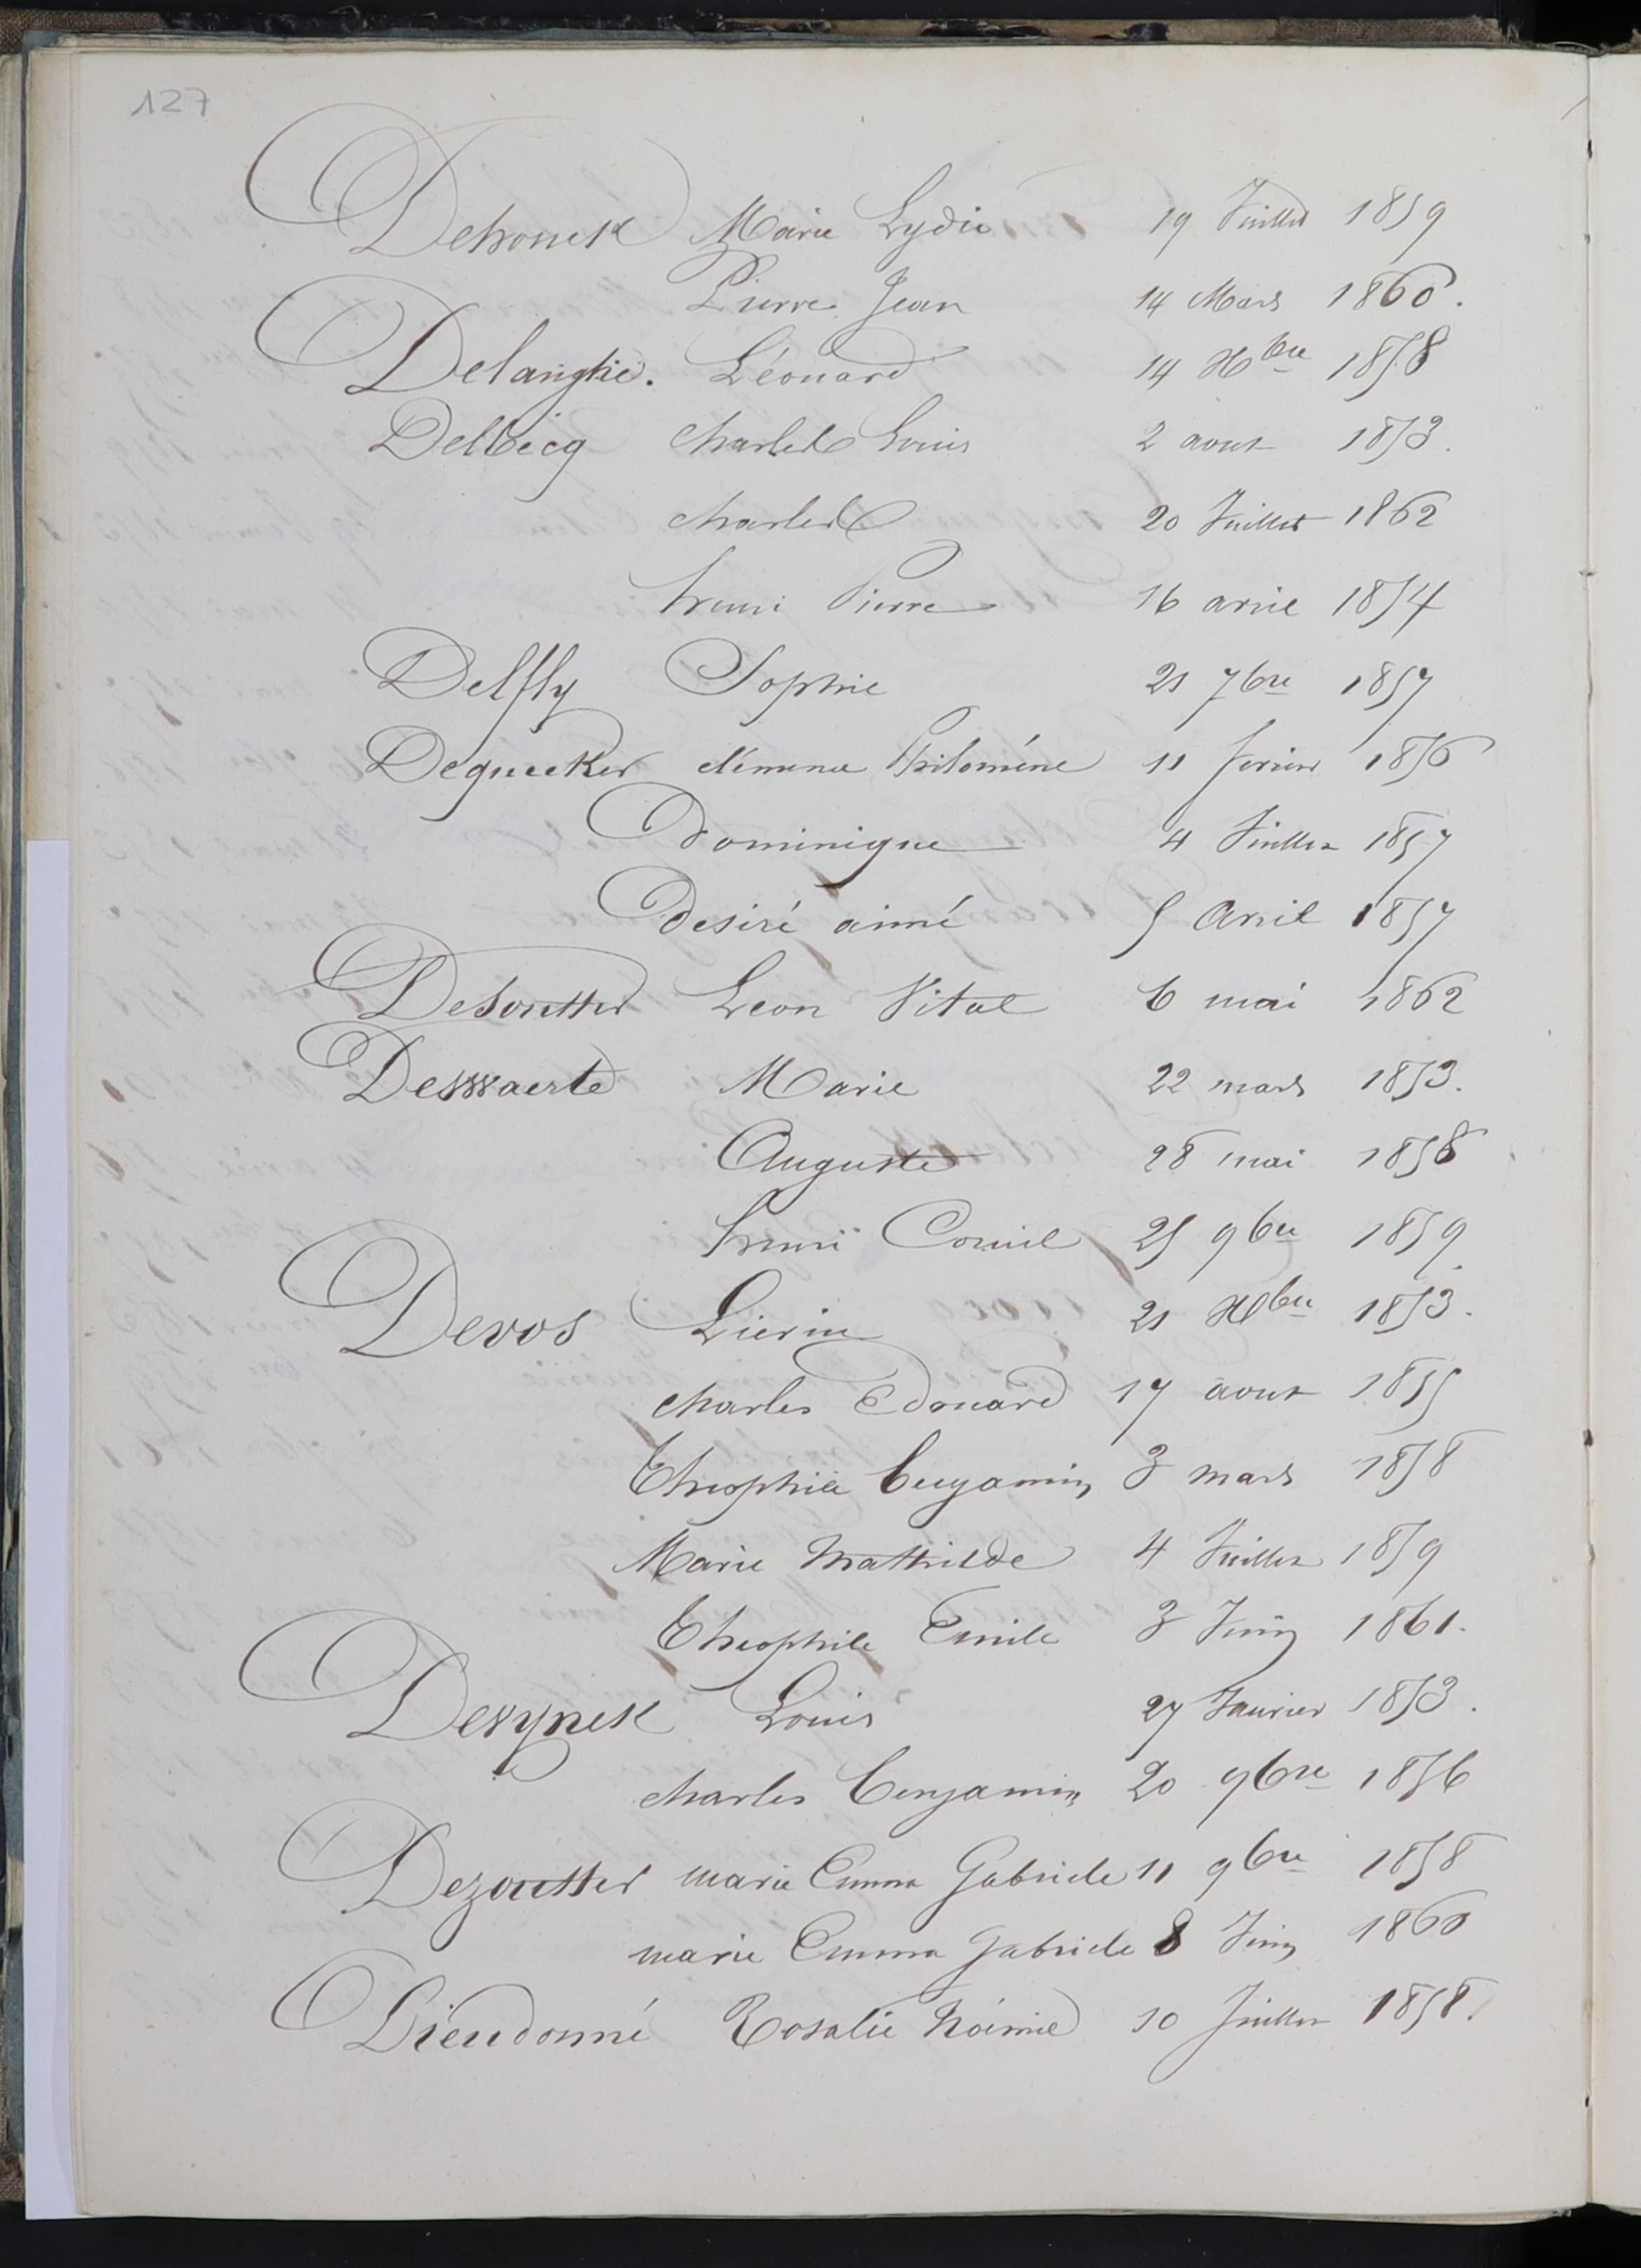 127
Dehonck Marie Lydie 19 Juillet 1859
Pierre Jean 14 Mars 1860.
Delanghe. Léonard 14 Xbre 1858
Delbecq Charles Louis 2 aout 1853.
Charles 20 Juillet 1862
henri Pierre 16 avril 1854
Delfly Sophie 21 7bre 1857
Dequecker clémence Philoméne 11 fevrier 1856
Dominique 4 Juillet 1857
Desiré aimé 5 Avril 1857
Desoutter Leon Vital 6 mai 1862
Deswaerte Marie 22 mars 1853.
Auguste 28 mai 1858
henri Cornil 25 9bre 1859.
Devos Lievin 21 Xbre 1853.
charles Edouard 17 aout 1855
Theophile benjamin 3 mars 1858
Marie Mathilde 4 Juillet 1859
Theophile Emile 3 Juin 1861.
Devynck Louis 27 Janvier 1853.
charles benjamin 20 9bre 1856
Dezoutter marie Emma Gabriele 11 9bre 1858
marie Emma Gabriele 8 Juin 1860
Dieudonné Rosalie Noémie 10 Juillet 1858.